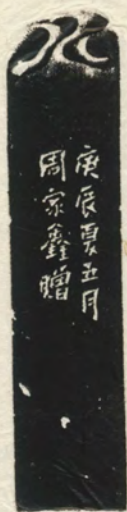 庚辰夏五月
周家鑫贈